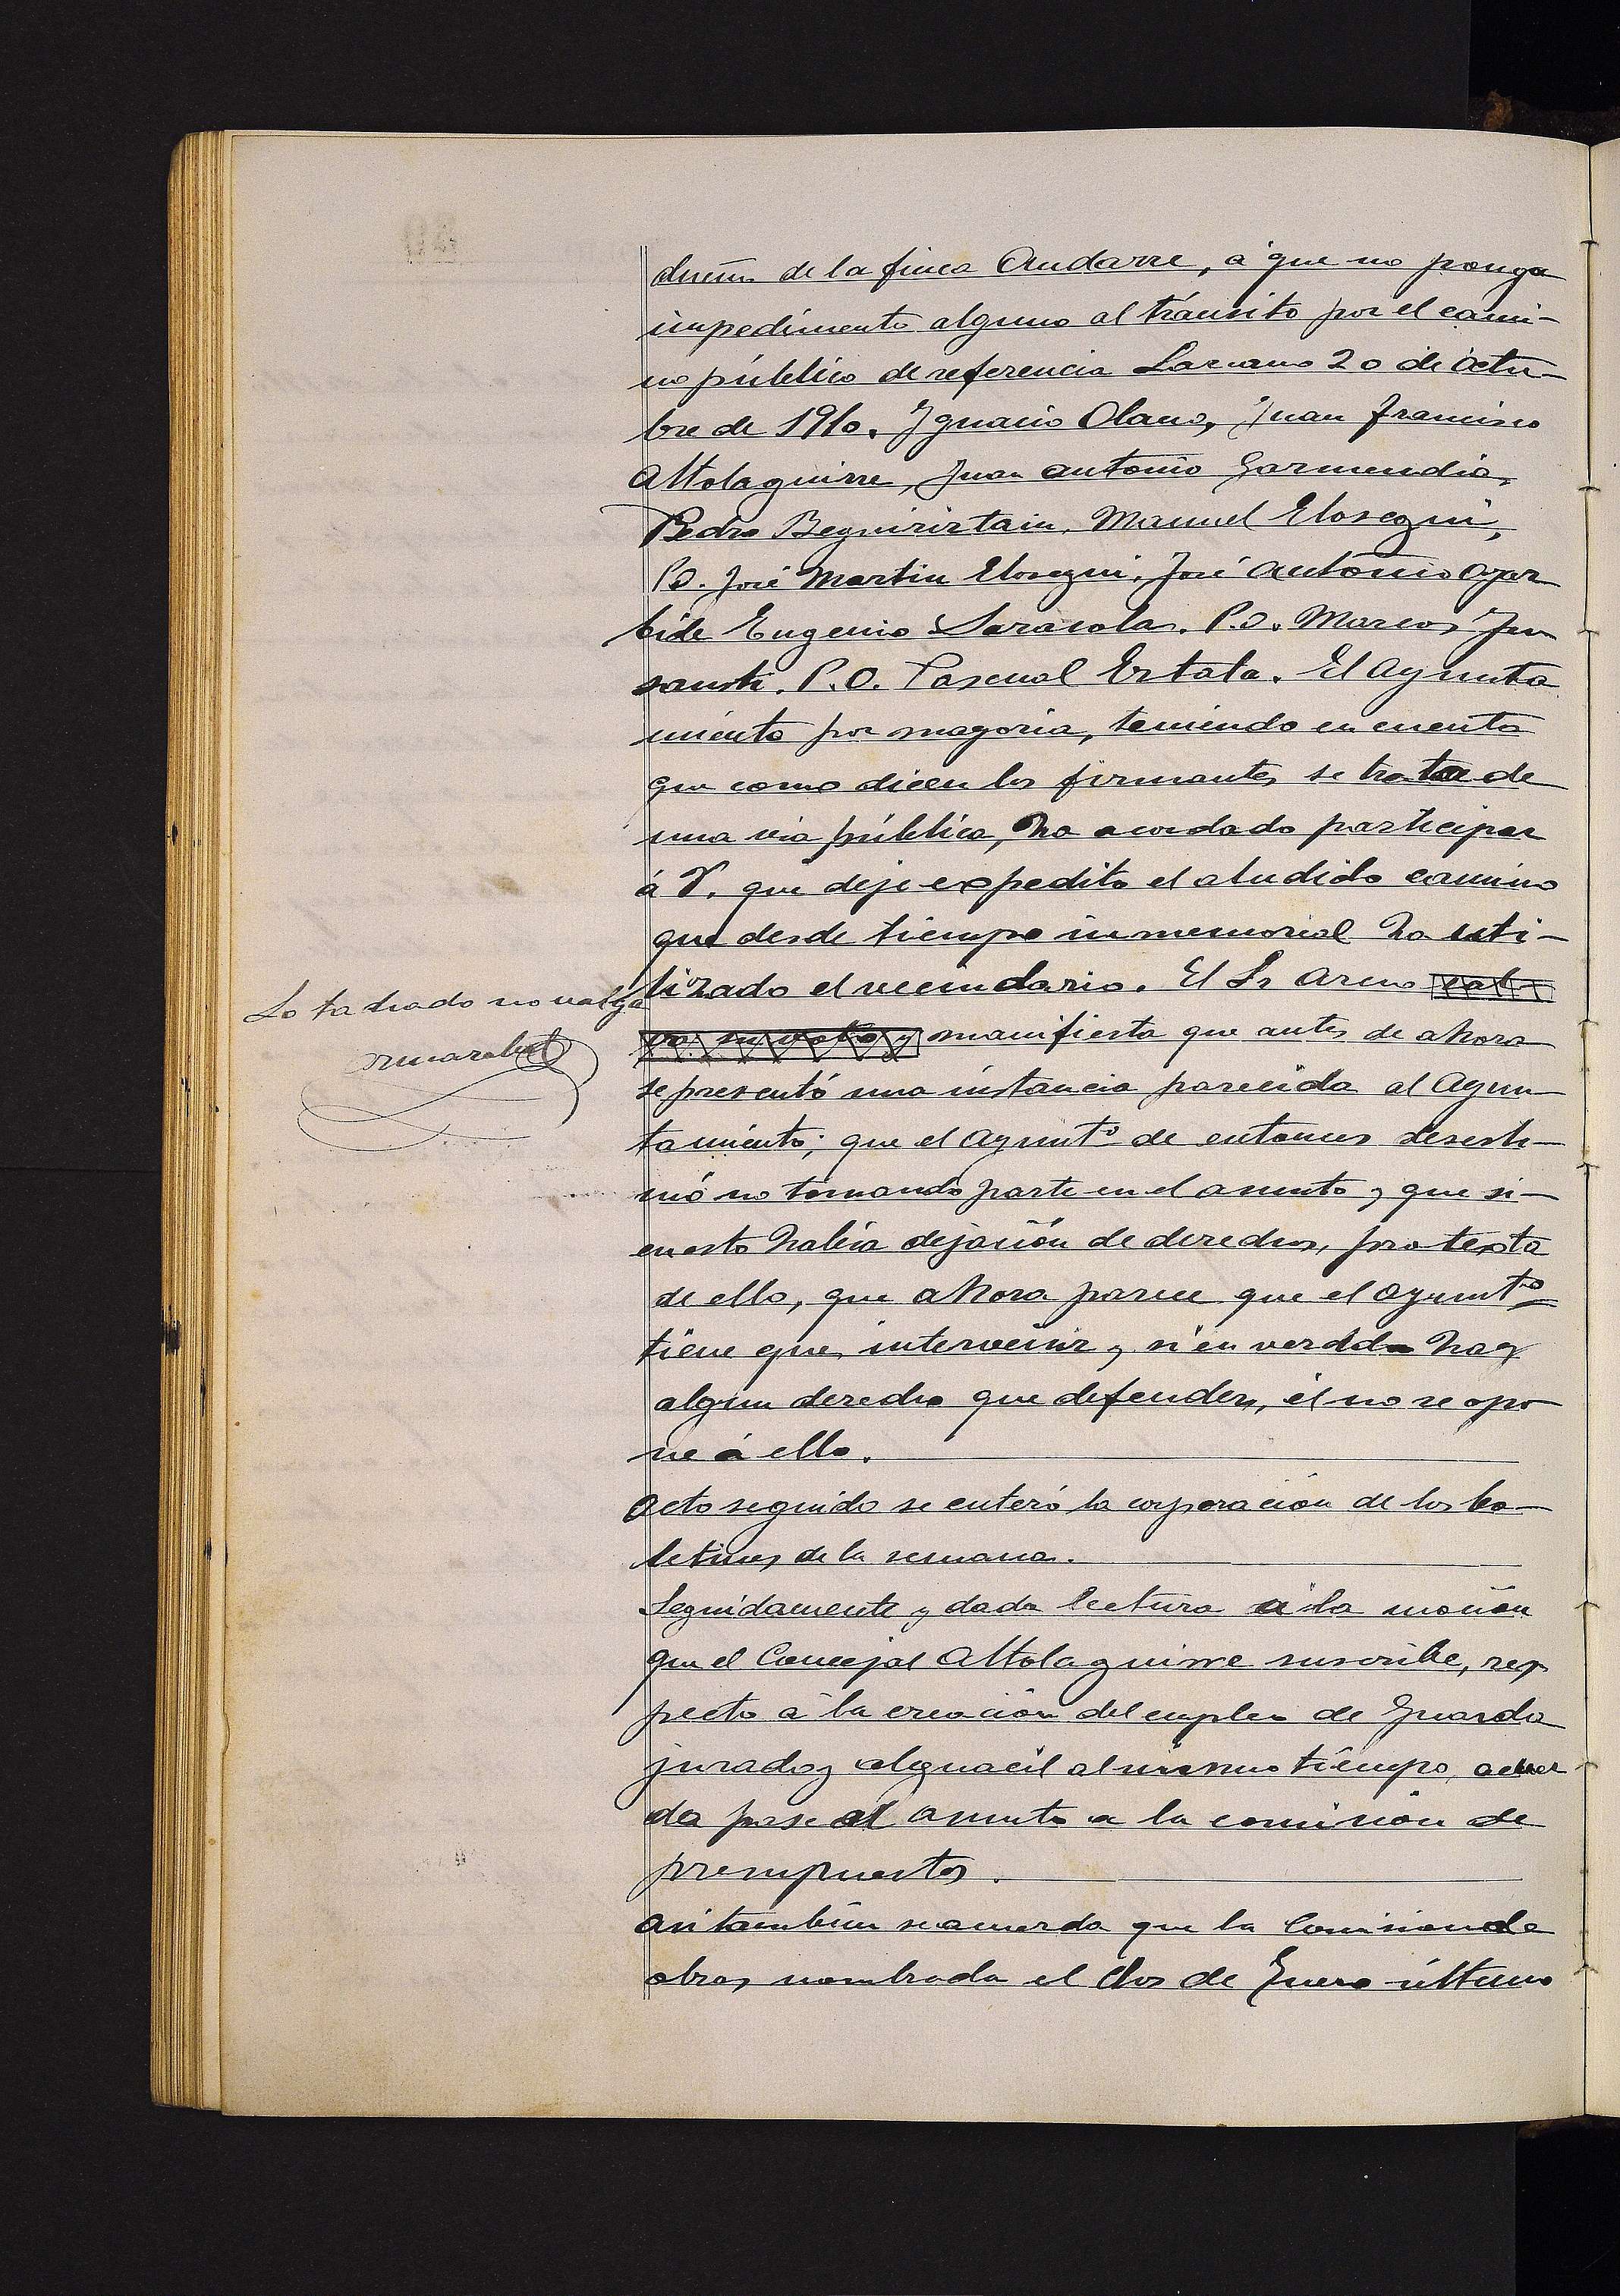 dueño de la finca Andarre, á que no ponga
impedimento alguno al tránsito por el cami-
no público de referencia Lazcano 20 de Octu-
bre de 1910. Ignacio Olano, Juan Francisco
Altolaguirre, Juan Antonio Garmendia,
Pedro Beguiristain, Manuel Elosegui,
P.O. José Martin Elosegui, José Antonio Ayer
bide Eugenio Sarasola. P.O. Marcos
P.O. Pascual Estala. El Ayunta
miento por mayoria, teniendo en cuenta
que como dicen los firmantes se trata de
una via pública, ha acordado participar
á V. que deje expedito el aludido camino
que desde tiempo inmemorial ha uti-
lizado el vecindario. El Sr Areno sal-
va su voto y manifiesta que antes de ahora
Lo tachado no valga
se presentó una instancia parecida al Ayun-
tamiento; que el Ayunto de entonces desesti-
mó no tomando parte en el asunto y que si
en esto habia dejación de derechos, protesta
de ello, que ahora parece que el Ayunto
tiene que intervenir y si en verdda hay
algun derecho que defender, él no se opo
ne á ello.
Acto seguido se enteró la corporación de los bo-
letines de la semana.
Seguidamente y dada lectura á la moción
que el Concejal Altolaguirre suscribe, res
pecto á la creación del empleo de Guarda
jurado y alguacil al mismo tiempo, acuer
da pase el asunto a la comisión de
presupuestos.
Asi tambien se acuerda que la Comision de
obras nombrada el dos de Enero último